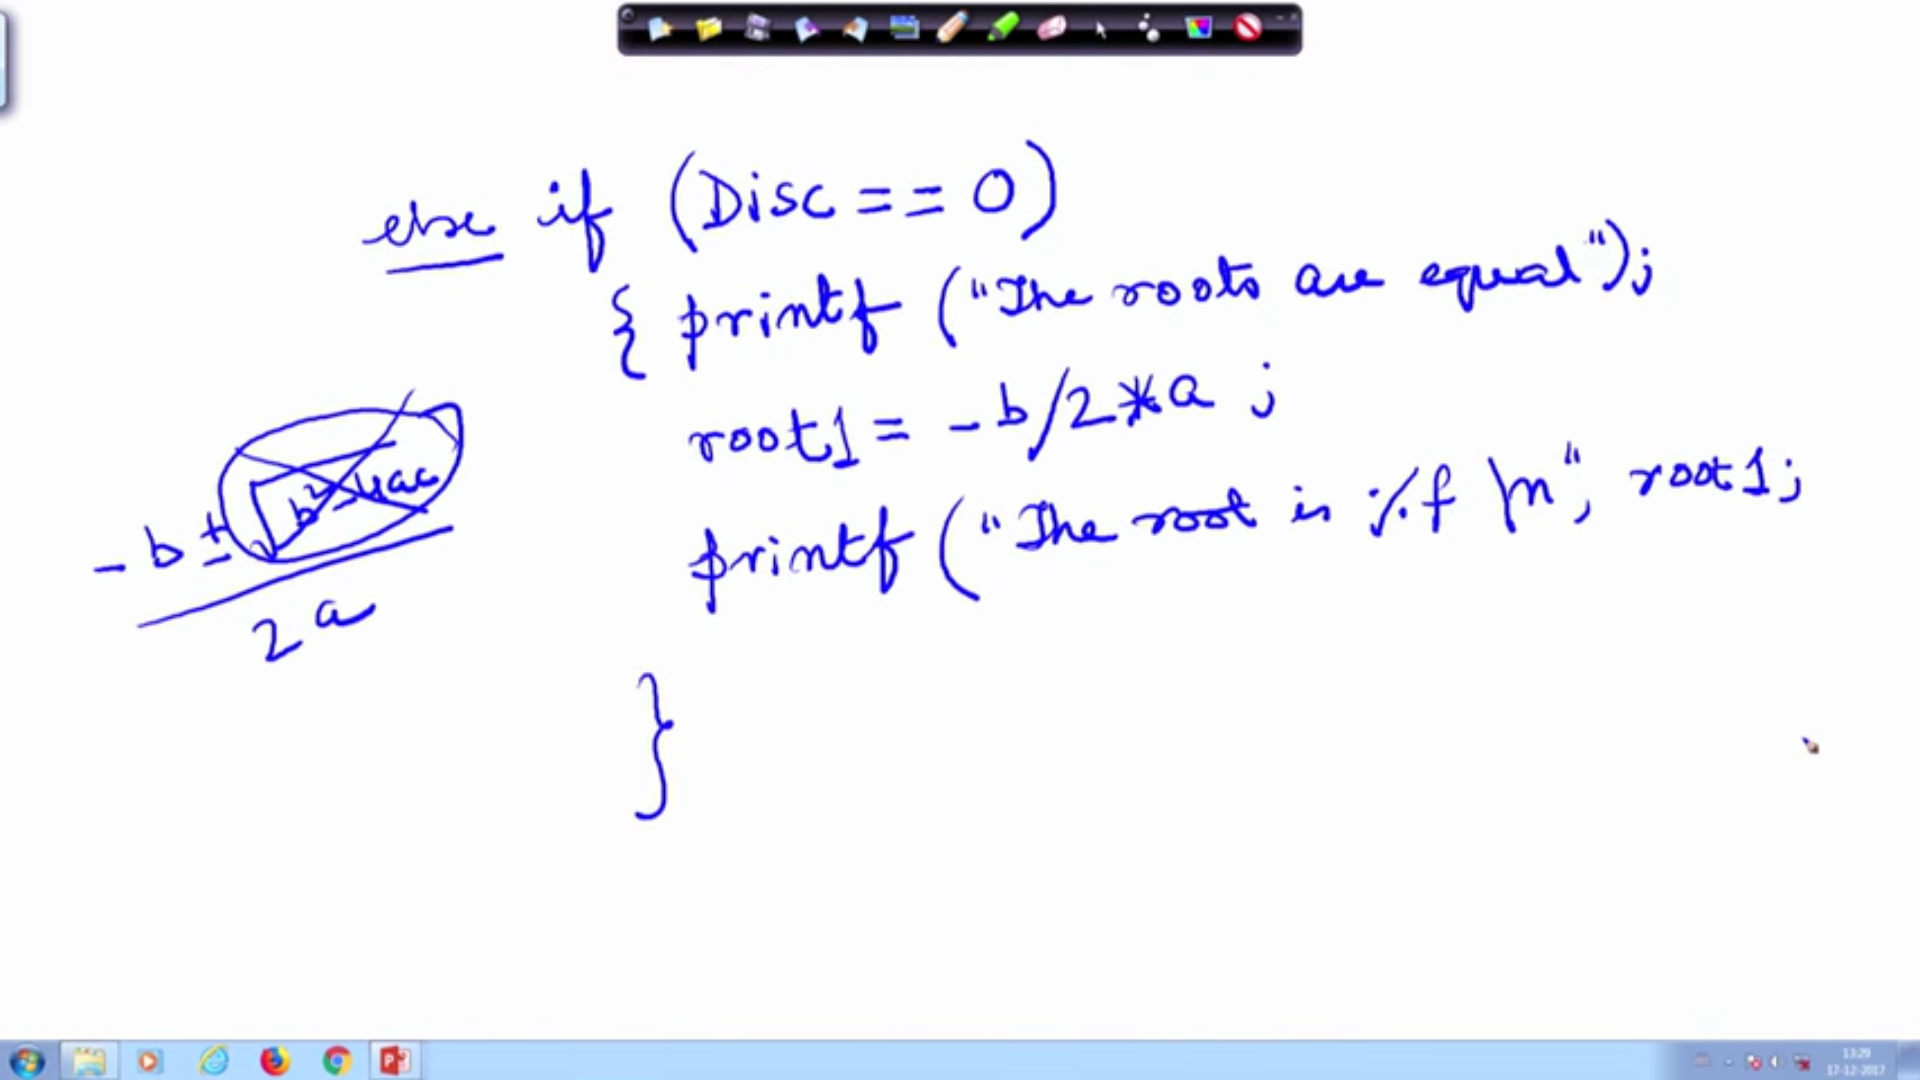 else if (Disc == 0)
{ printf ("The roots are equal");
root1 = -b/2*a ;
printf ("The root is %f \n", root1;
}
-b ± √b²-4ac
2a
13:29
17-12-2017